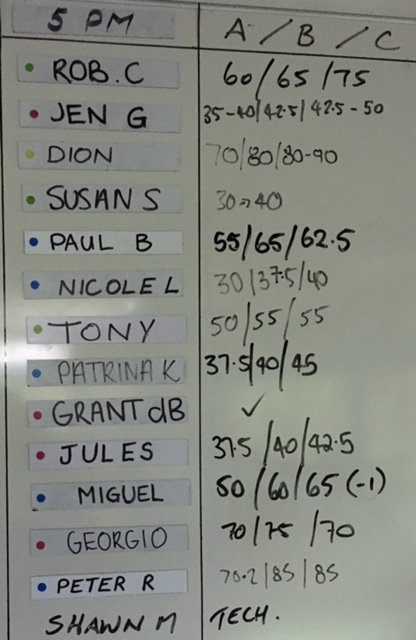 5 PM A / B / C
ROB.C 60/65/75
JEN G 35-40/42.5/42.5-50
DION 70/80/80-90
SUSAN S 30→40
PAUL B 55/65/62.5
NICOLE L 30/37.5/40
TONY 50/55/55
PATRINA K 37.5/40/45
GRANT dB ✓
JULES 37.5/40/42.5
MIGUEL 50/60/65 (-1)
GEORGIO 70/75/70
PETER R 70.2/85/85
SHAWN M TECH.